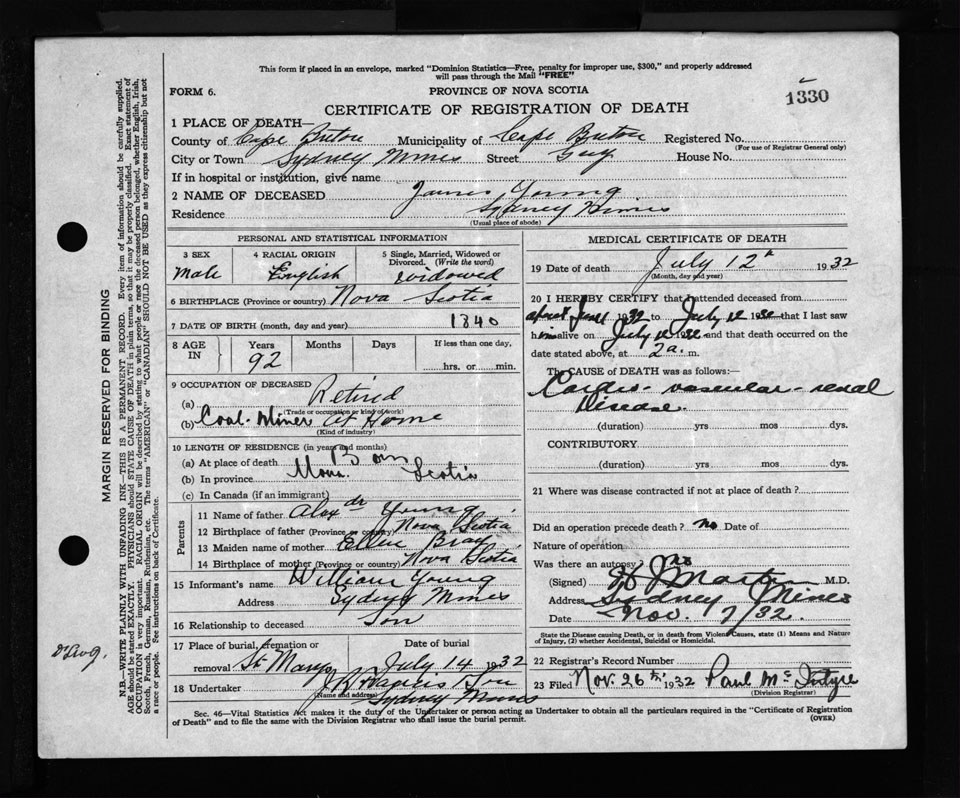 This form if placed in an envelope, marked "Dominion Statistics—Free, penalty for improper use, $300," and properly addressed
will pass through the Mail "FREE"
FORM 6.
PROVINCE OF NOVA SCOTIA
1330
CERTIFICATE OF REGISTRATION OF DEATH
1 PLACE OF DEATH—
County of Cape Breton Municipality of Cape Breton Registered No.
(For use of Registrar General only)
City or Town Sydney Mines Street Guy House No.
If in hospital or institution, give name
2 NAME OF DECEASED James Young
Residence Sydney Mines
(Usual place of abode)
PERSONAL AND STATISTICAL INFORMATION
3 SEX 4 RACIAL ORIGIN 5 Single, Married, Widowed or Divorced. (Write the word)
Male English Widowed
6 BIRTHPLACE (Province or country) Nova Scotia
7 DATE OF BIRTH (month, day and year) 1840
8 AGE IN Years Months Days If less than one day,
92 hrs. or min.
9 OCCUPATION OF DECEASED
(a) Retired
(Trade or occupation or kind of work)
(b) Coal-Miner at Home
(Kind of industry)
10 LENGTH OF RESIDENCE (in years and months)
(a) At place of death Born
(b) In province Nova Scotia
(c) In Canada (if an immigrant)
Parents
11 Name of father Alexdr Young
12 Birthplace of father (Province or country) Nova Scotia
13 Maiden name of mother Ellen Bray
14 Birthplace of mother (Province or country) Nova Scotia
15 Informant's name William Young
Address Sydney Mines
16 Relationship to deceased Son
17 Place of burial, cremation or removal Date of burial
St Marys July 14 1932
18 Undertaker & Son
(Name and address) Sydney Mines
MEDICAL CERTIFICATE OF DEATH
19 Date of death July 12th 1932
(Month, day and year)
20 I HEREBY CERTIFY that I attended deceased from
1932 to July 12 1932 that I last saw
him alive on July 12 1932 and that death occurred on the
date stated above, at 2 a. m.
The CAUSE OF DEATH was as follows:
Cardio-vascular-renal
Disease.
(duration) yrs mos dys.
CONTRIBUTORY
(duration) yrs. mos. dys.
21 Where was disease contracted if not at place of death?
Did an operation precede death? no Date of
Nature of operation
Was there an autopsy? no
(Signed) Martin M.D.
Address Sydney Mines
Date Nov. 7/32.
State the Disease causing Death, or in death from Violent Causes, state (1) Means and Nature
of Injury, (2) whether Accidental, Suicidal or Homicidal.
22 Registrar's Record Number
23 Filed Nov. 26th, 1932 Paul McIntyre
(Division Registrar)
Sec. 46—Vital Statistics Act makes it the duty of the Undertaker or person acting as Undertaker to obtain all the particulars required in the "Certificate of Registration
of Death" and to file the same with the Division Registrar who shall issue the burial permit.
(OVER)
MARGIN RESERVED FOR BINDING
N.B.—WRITE PLAINLY WITH UNFADING INK—THIS IS A PERMANENT RECORD. Every item of information should be carefully supplied.
AGE should be stated EXACTLY. PHYSICIANS should STATE CAUSE OF DEATH in plain terms, so that it may be properly classified. Exact statement of
OCCUPATION is very important. RACIAL ORIGIN will be described by stating to what people or race the deceased person belonged, whether English, Irish,
Scotch, French, German, Russian, Ruthenian, etc. The terms "AMERICAN" or "CANADIAN" SHOULD NOT BE USED as they express citizenship but not
a race or people. See instructions on back of Certificate.